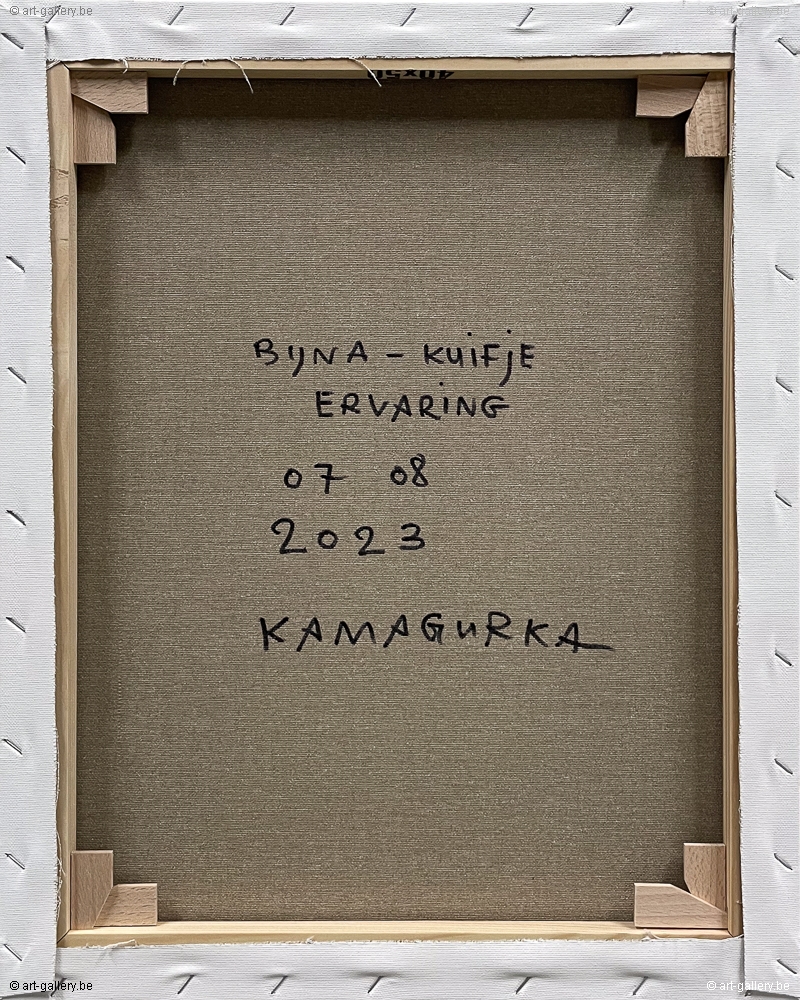 © art-gallery.be
© art-gallery.be
40x50
BIJNA - KUIFJE
ERVARING
07 08
2023
KAMAGURKA
© art-gallery.be
© art-gallery.be